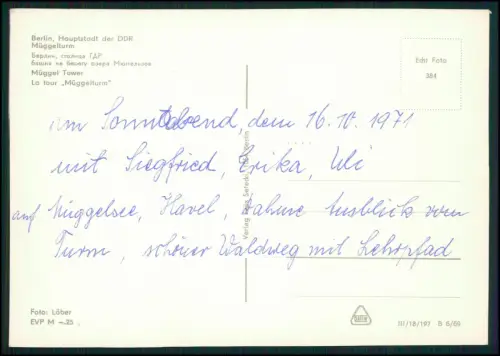 Berlin, Hauptstadt der DDR
Müggelturm
Берлин, столица ГДР
Müggel Tower
La tour „Müggelturm"
Echt Foto
364
am Sonnabend, dem 16.10.1971
mit Siegfried, Erika, Uli
auf Müggelsee, Havel, Ausblick vom
Turm, schöner Waldweg mit Lehrpfad
Verlag Berlin
Foto: Löber
EVP M –.25
III/18/197 B 6/69